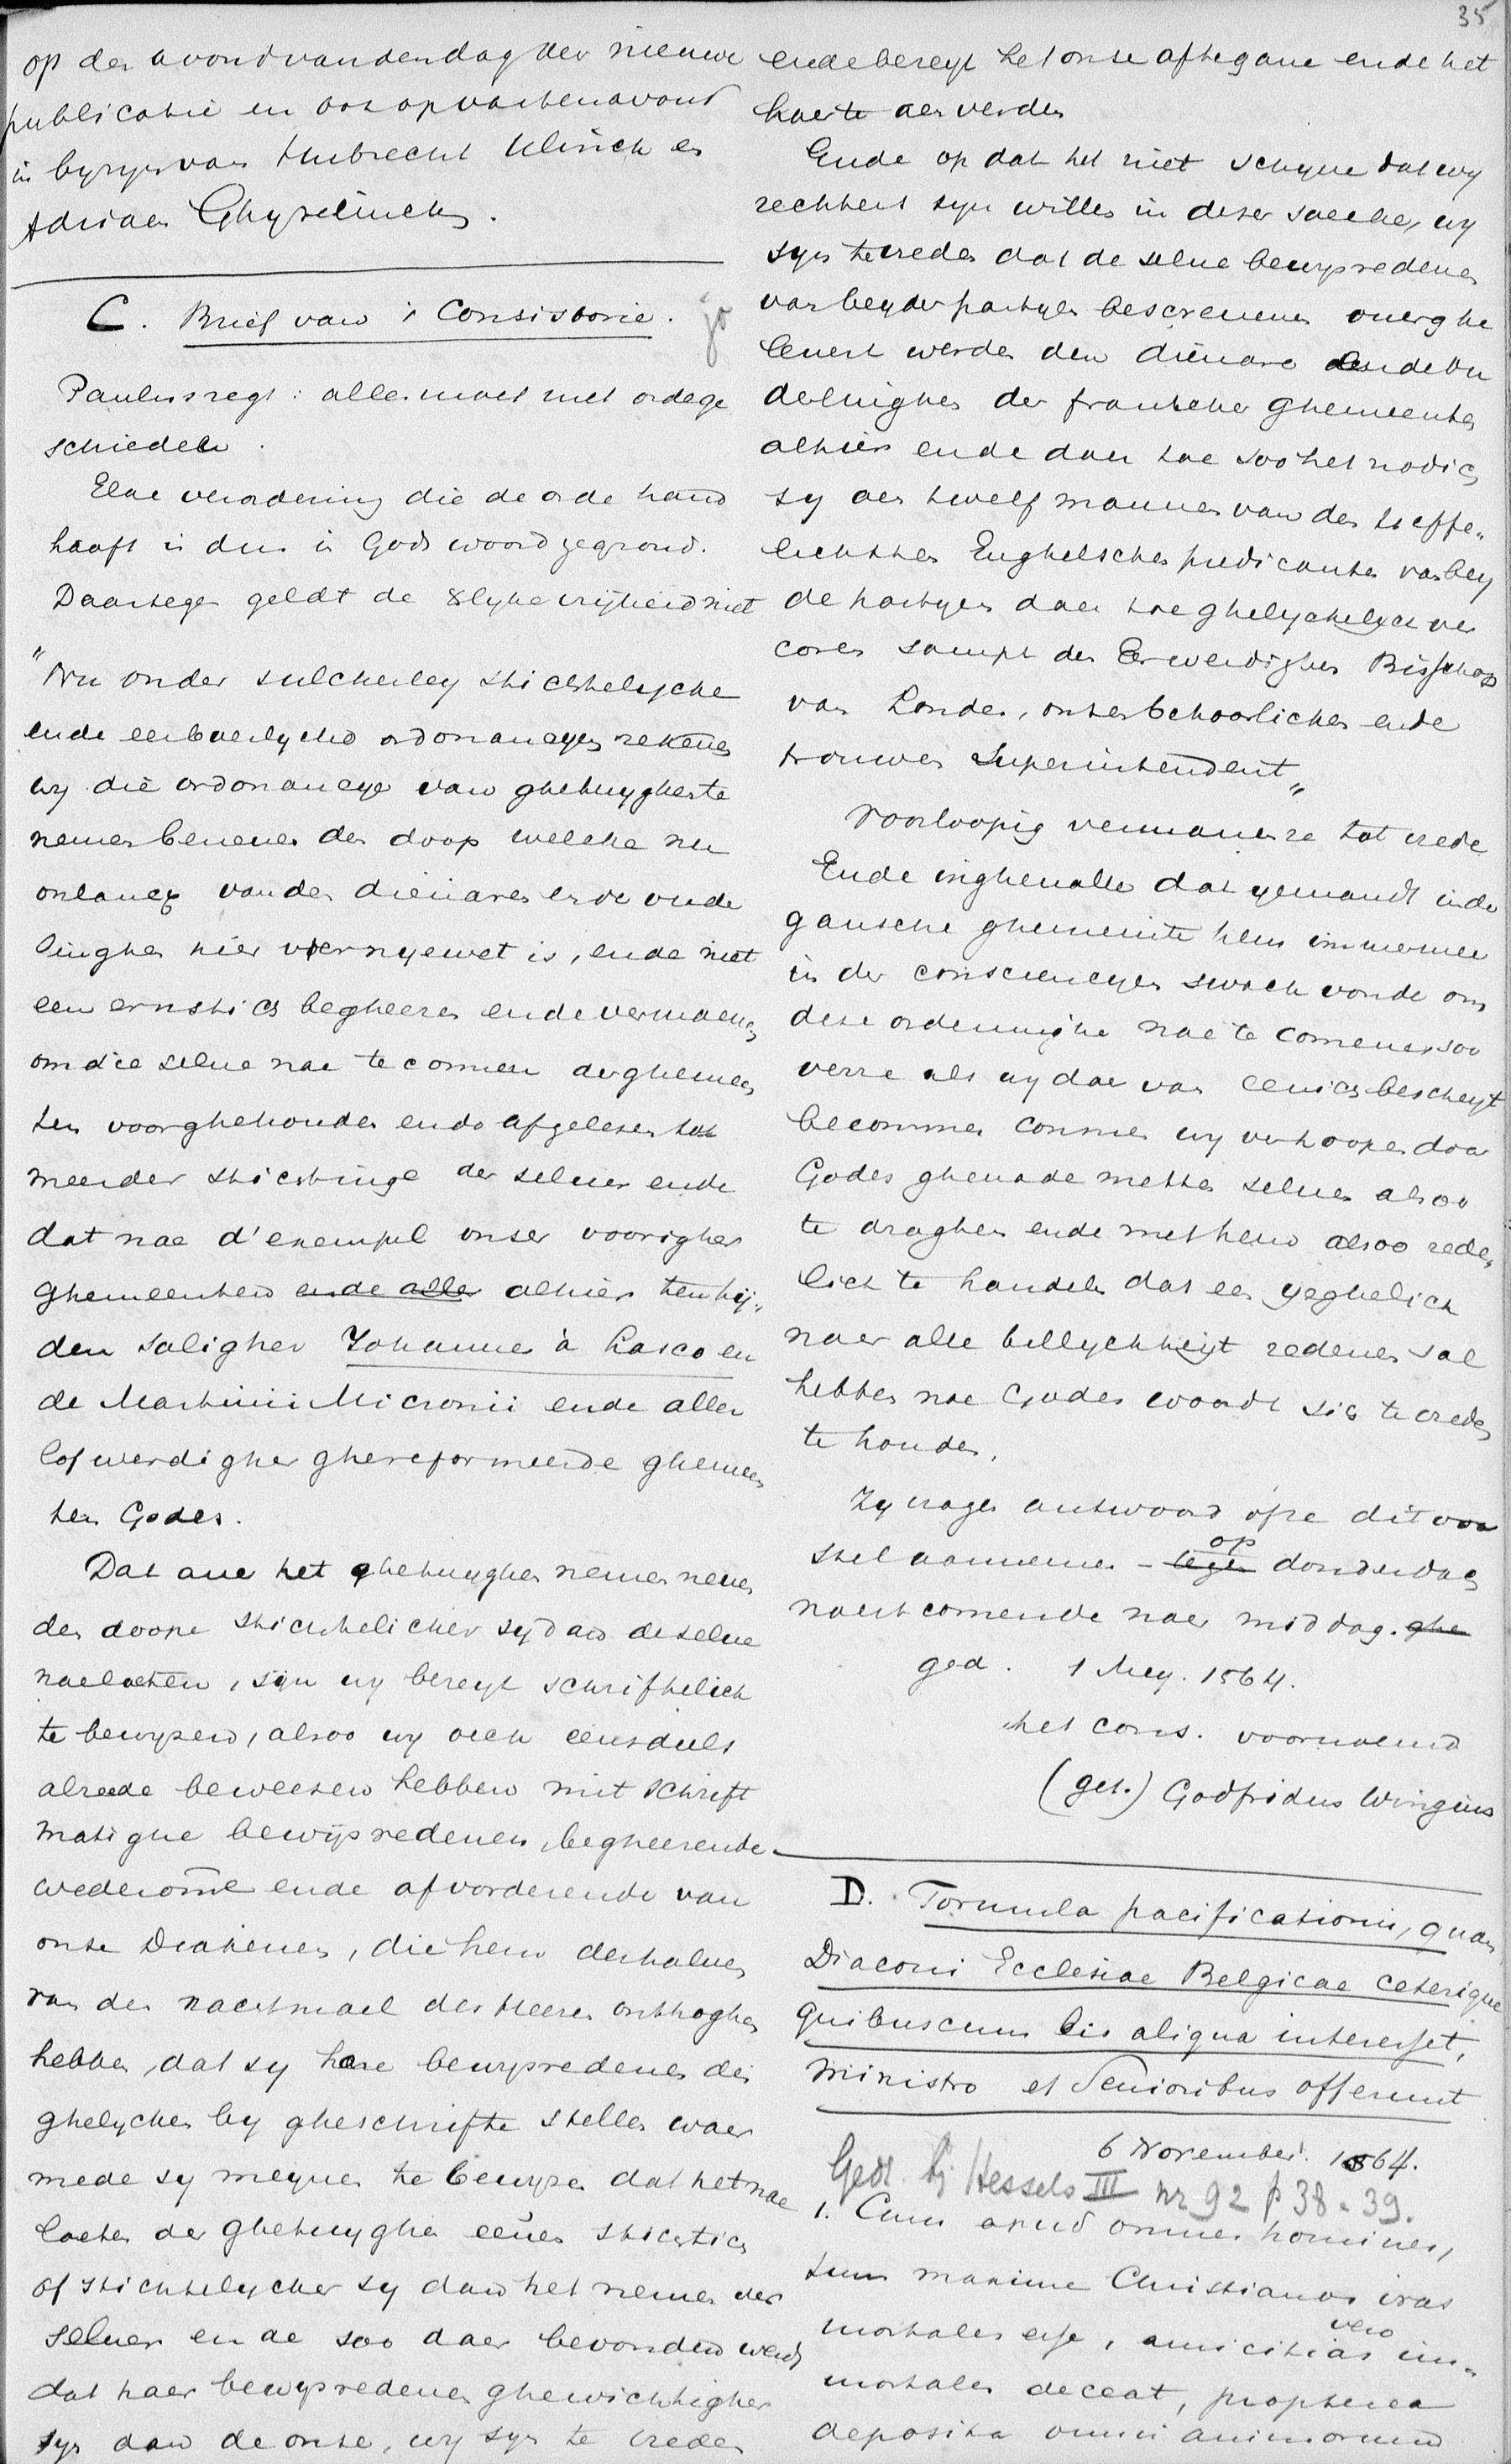 35
op den avond van den dag der nieuwe
publicatie en ook op vastenavond
in bijzijn van Hubrecht Klinck en
Adriaen Ghyselinck.
C. Brief van 't Consistorie.
Paulus zegt: alles moet met orde ge
schieden.
Elke verordening die de orde hand
haaft is dus in Gods woord gegrond.
Daartegen geldt de vrijheid niet
"Nu onder sulckerley stichtelycke
ende eerbaerlycke ordonancyen rekenen
wy die ordonancye van ghetuyghen te
nemen beneven den doop welcke nu
onlancx van den dienaren ende oude
linghen hier vernyewet is, ende met
een ernstich begheeren ende vermaenen
om die selue nae te commen der ghemeen
ten voorghehouden ende afgelesen tot
meerder stichtinge der seluer ende
dat nae d'exempel onser voorigher
ghemeenten ende aller alhier ten tij-
den saligher Johannes à Lasco en
de Martinii Micronii ende aller
lofwerdigher ghereformeerde ghemeen
ten Godes.
Dat aue het ghetuyghen nemen neuen
den doope stichtelicker sy dan de selue
naelaten, syn wy bereyt schriftelick
te bewysen, alsoo wy oeck eensdeels
alreede beweesen hebben mit schrift
matighe bewijsredenen, begheerende
wederomme ende afvorderende van
onse Diakenen, die hem derhaluen
van den nachtmael des Heeren onthoghen
hebben, dat sy hare bewysredenen des
ghelycken by gheschrifte stellen waer
mede sy meynen te bewysen dat het nae
laeten der ghetuyghen euen stichtich
of stichtelycker sy dan het nemen der
seluer ende soo daer bevonden werdt
dat haer bewysredenen ghewichtigher
syn dan de onse, wy syn te vreden
ende bereyt het onse af te gane ende het
haerte aen verden
Ende op dat het niet schyne dat wy
rechters syn willen in deser saecke, wy
syn te vreden dat de selue bewysredenen
van beyder partyen bescreuen ouerghe
leuert werden den dienare ende ou
derlinghen der fransche ghemeenten
alhier ende daer toe soo het nodich
sy aen twelf mannen van den treffe-
licksten Enghelschen predicanten van bey
de partyen daer toe ghelyckelyck ver
coren sampt den Eerwerdighen Bisschop
van Londen, onsen behoorlicken ende
trouwen Superintendent"
Voorloopig vermanen ze tot vrede
Ende inghevalle dat yemandt in de
gansche ghemeinte hem immermeer
in der consciencyen swack vonde om
dese ordeninghe nae te comene, soo
verre als wy dae van eenich bescheyt
becommen connen wy verhoopen door
Godes ghenade metten seluen alsoo
te draghen ende met hem alsoo rede-
lick te handelen dat een yeghelick
naer alle billyckheyt redenen sal
hebben nae Godes woordt sich te vreden
te houden.
Zy vragen antwoord of ze dit voor
stel aannemen - tegen op donderdag
naestcomende naer middag. ghe
ged. 1 Mey. 1564.
het cons. voornoemd
(get.) Godfridus Wingius
D. Formula pacificationis, quam
Diaconi Ecclesiae Belgicae ceterique
quibuscum lis aliqua interesset,
Ministro et Senioribus offerunt
6 November. 1564.
Gedr. bij Hessels III nr 92 p 38-39.
1. Cum apud omnes homines,
tum maxime Christianos iras
mortales esse, amicitias vero im-
mortales deceat, propterea
deposita omni animorum